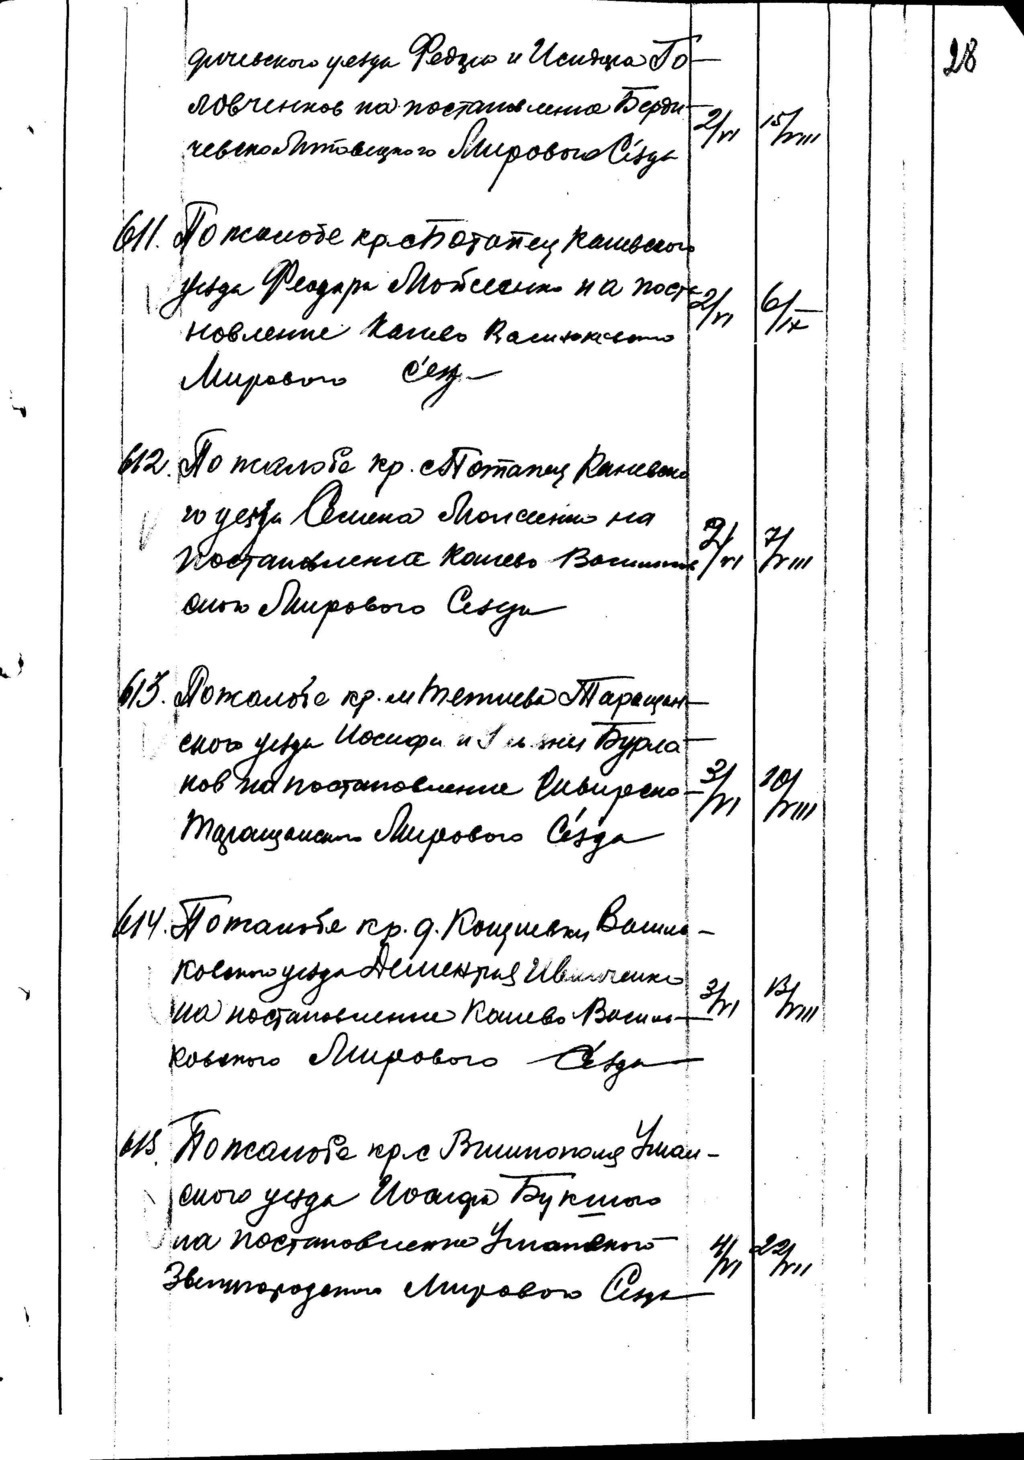 28
дичевского уезда Федора и Исидора Го-
ловченков на постановление Берди-
чевско Липовецкого Мирового Съезда 2/VI 15/VIII
611. По жалобе кр. с Потапец Каневского
уезда Феодора Мойсеенко на поста-
новление Канево Васильковского 2/VI 6/IX
Мирового Съезда
612. По жалобе кр. с Потапец Каневско
го уезда Семена Мойсеенко на
постановление Канево Васильков 2/VI 7/VIII
ского Мирового Съезда
613. По жалобе кр. м Тетиева Таращан-
ского уезда Иосифа и Бурла-
ков на постановление Сквирско- 3/VI 10/VIII
Таращанского Мирового Съезда
614. По жалобе кр. д. Василь-
ковского уезда Дементия Иванченко
на постановление Канево Василь- 3/VI 13/VIII
ковского Мирового Съезда
615. По жалобе кр. с Вишнополя Уман-
ского уезда Иосифа
на постановление Уманского
Звенигородского Мирового Съезда 4/VI 22/VII